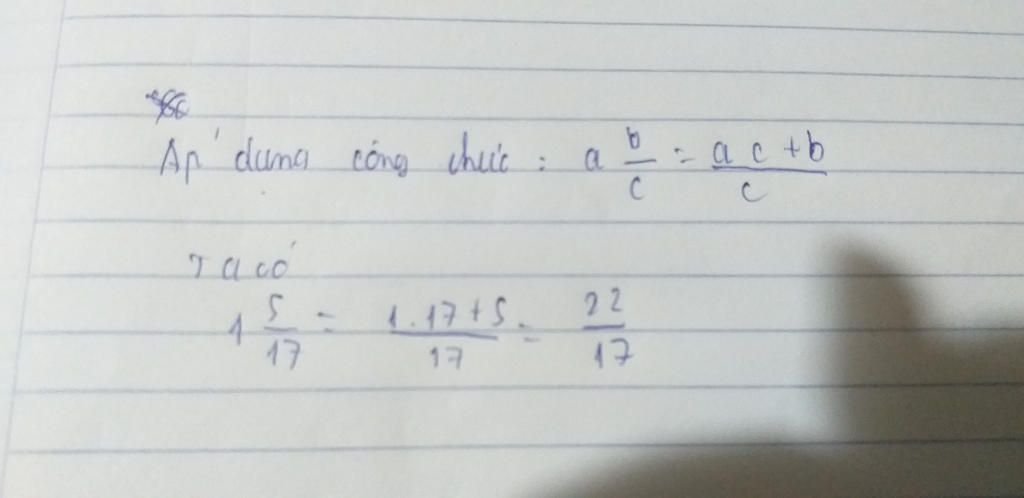 Áp dụng công thức : a b/c = (a c + b)/c
Ta có
1 5/17 = (1.17 + 5)/17 = 22/17